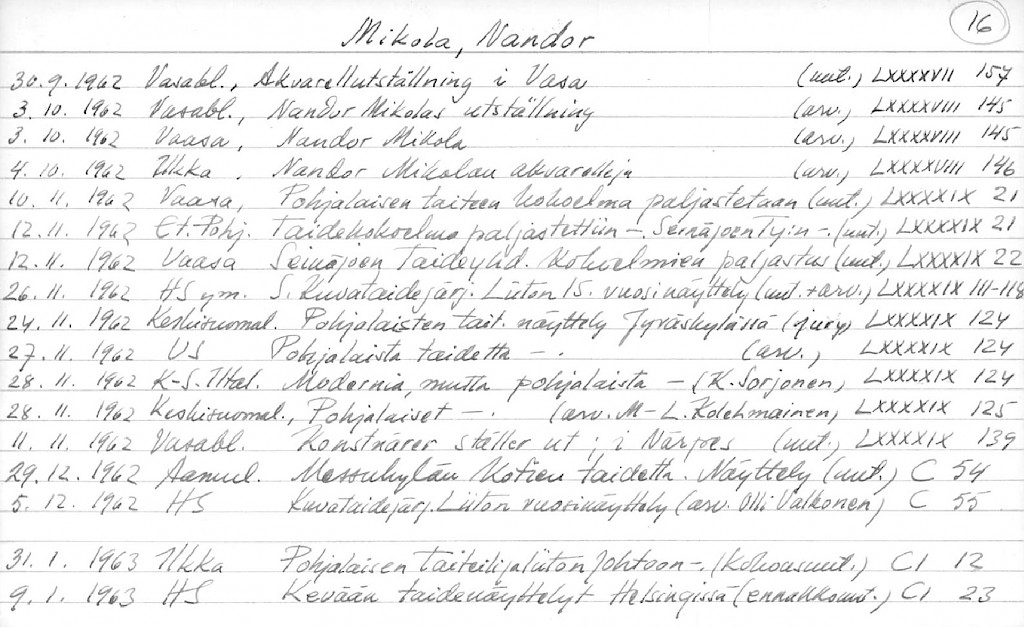 16
Mikola, Nandor
30.9.1962 Vasabl., Akvarellutställning i Vasa (uut.) LXXXXVII 157
3.10.1962 Vasabl., Nandor Mikolas utställning (arv.) LXXXXVIII 145
3.10.1962 Vaasa, Nandor Mikola (arv.) LXXXXVIII 145
4.10.1962 Ilkka, Nandor Mikolan akvarelleja (arv.) LXXXXVIII 146
10.11.1962 Vaasa, Pohjalaisen taiteen kokoelma paljastetaan (uut.) LXXXXIX 21
12.11.1962 Et.Pohj. Taidekokoelma paljastettiin -. Seinäjoen Ty:n -. (uut.) LXXXXIX 21
12.11.1962 Vaasa Seinäjoen Taideyhd. kokoelmien paljastus (uut.) LXXXXIX 22
26.11.1962 HS ym. S. Kuvataidejärj. Liiton 15. vuosinäyttely (uut. + arv.) LXXXXIX 111-118
24.11.1962 Keskisuomal. Pohjalaisten tait. näyttely Jyväskylässä (jury) LXXXXIX 124
27.11.1962 US Pohjalaista taidetta -. (arv.) LXXXXIX 124
28.11.1962 K-S. Iltal. Modernia, mutta pohjalaista - (K. Sorjonen) LXXXXIX 124
28.11.1962 Keskisuomal., Pohjalaiset -. (arv. M-L. Kolehmainen) LXXXXIX 125
11.11.1962 Vasabl. Konstnärer ställer ut i Närpes (uut.) LXXXXIX 139
29.12.1962 Aamul. Messukylän kotien taidetta. Näyttely (uut.) C 54
5.12.1962 HS Kuvataidejärj. Liiton vuosinäyttely (arv. Olli Valkonen) C 55
31.1.1963 Ilkka Pohjalaisen Taiteilijaliiton johtoon -. (kokousuut.) CI 12
9.1.1963 HS Kevään taidenäyttelyt Helsingissä (ennakkouut.) CI 23